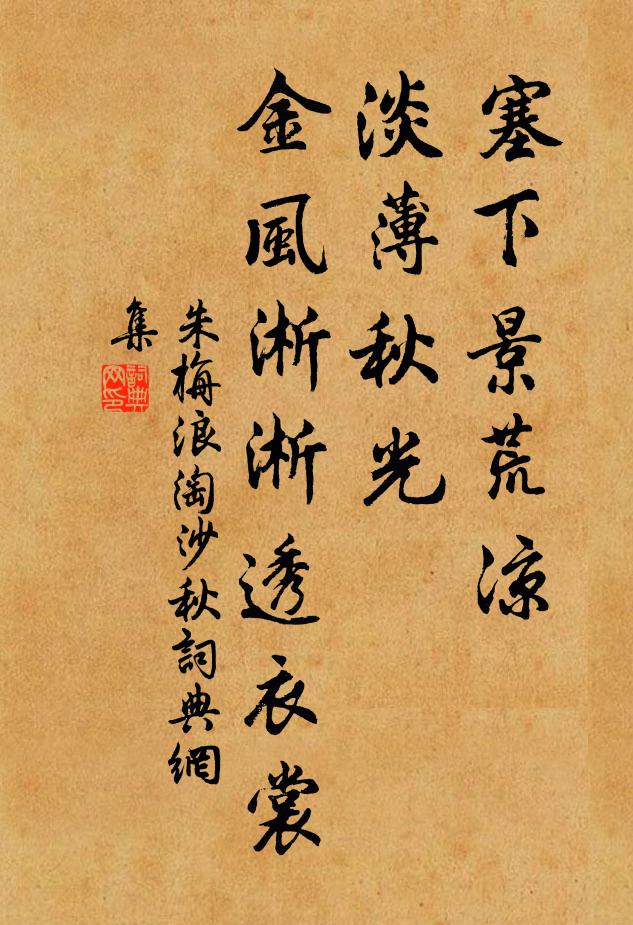 塞下景荒涼
淡薄秋光
金風淅淅透衣裳
朱梅浪淘沙秋詞典網
集
詞典
网印